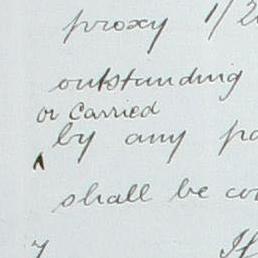 proxy 1/2
outstanding
or carried
by any pa
shall be co
y If